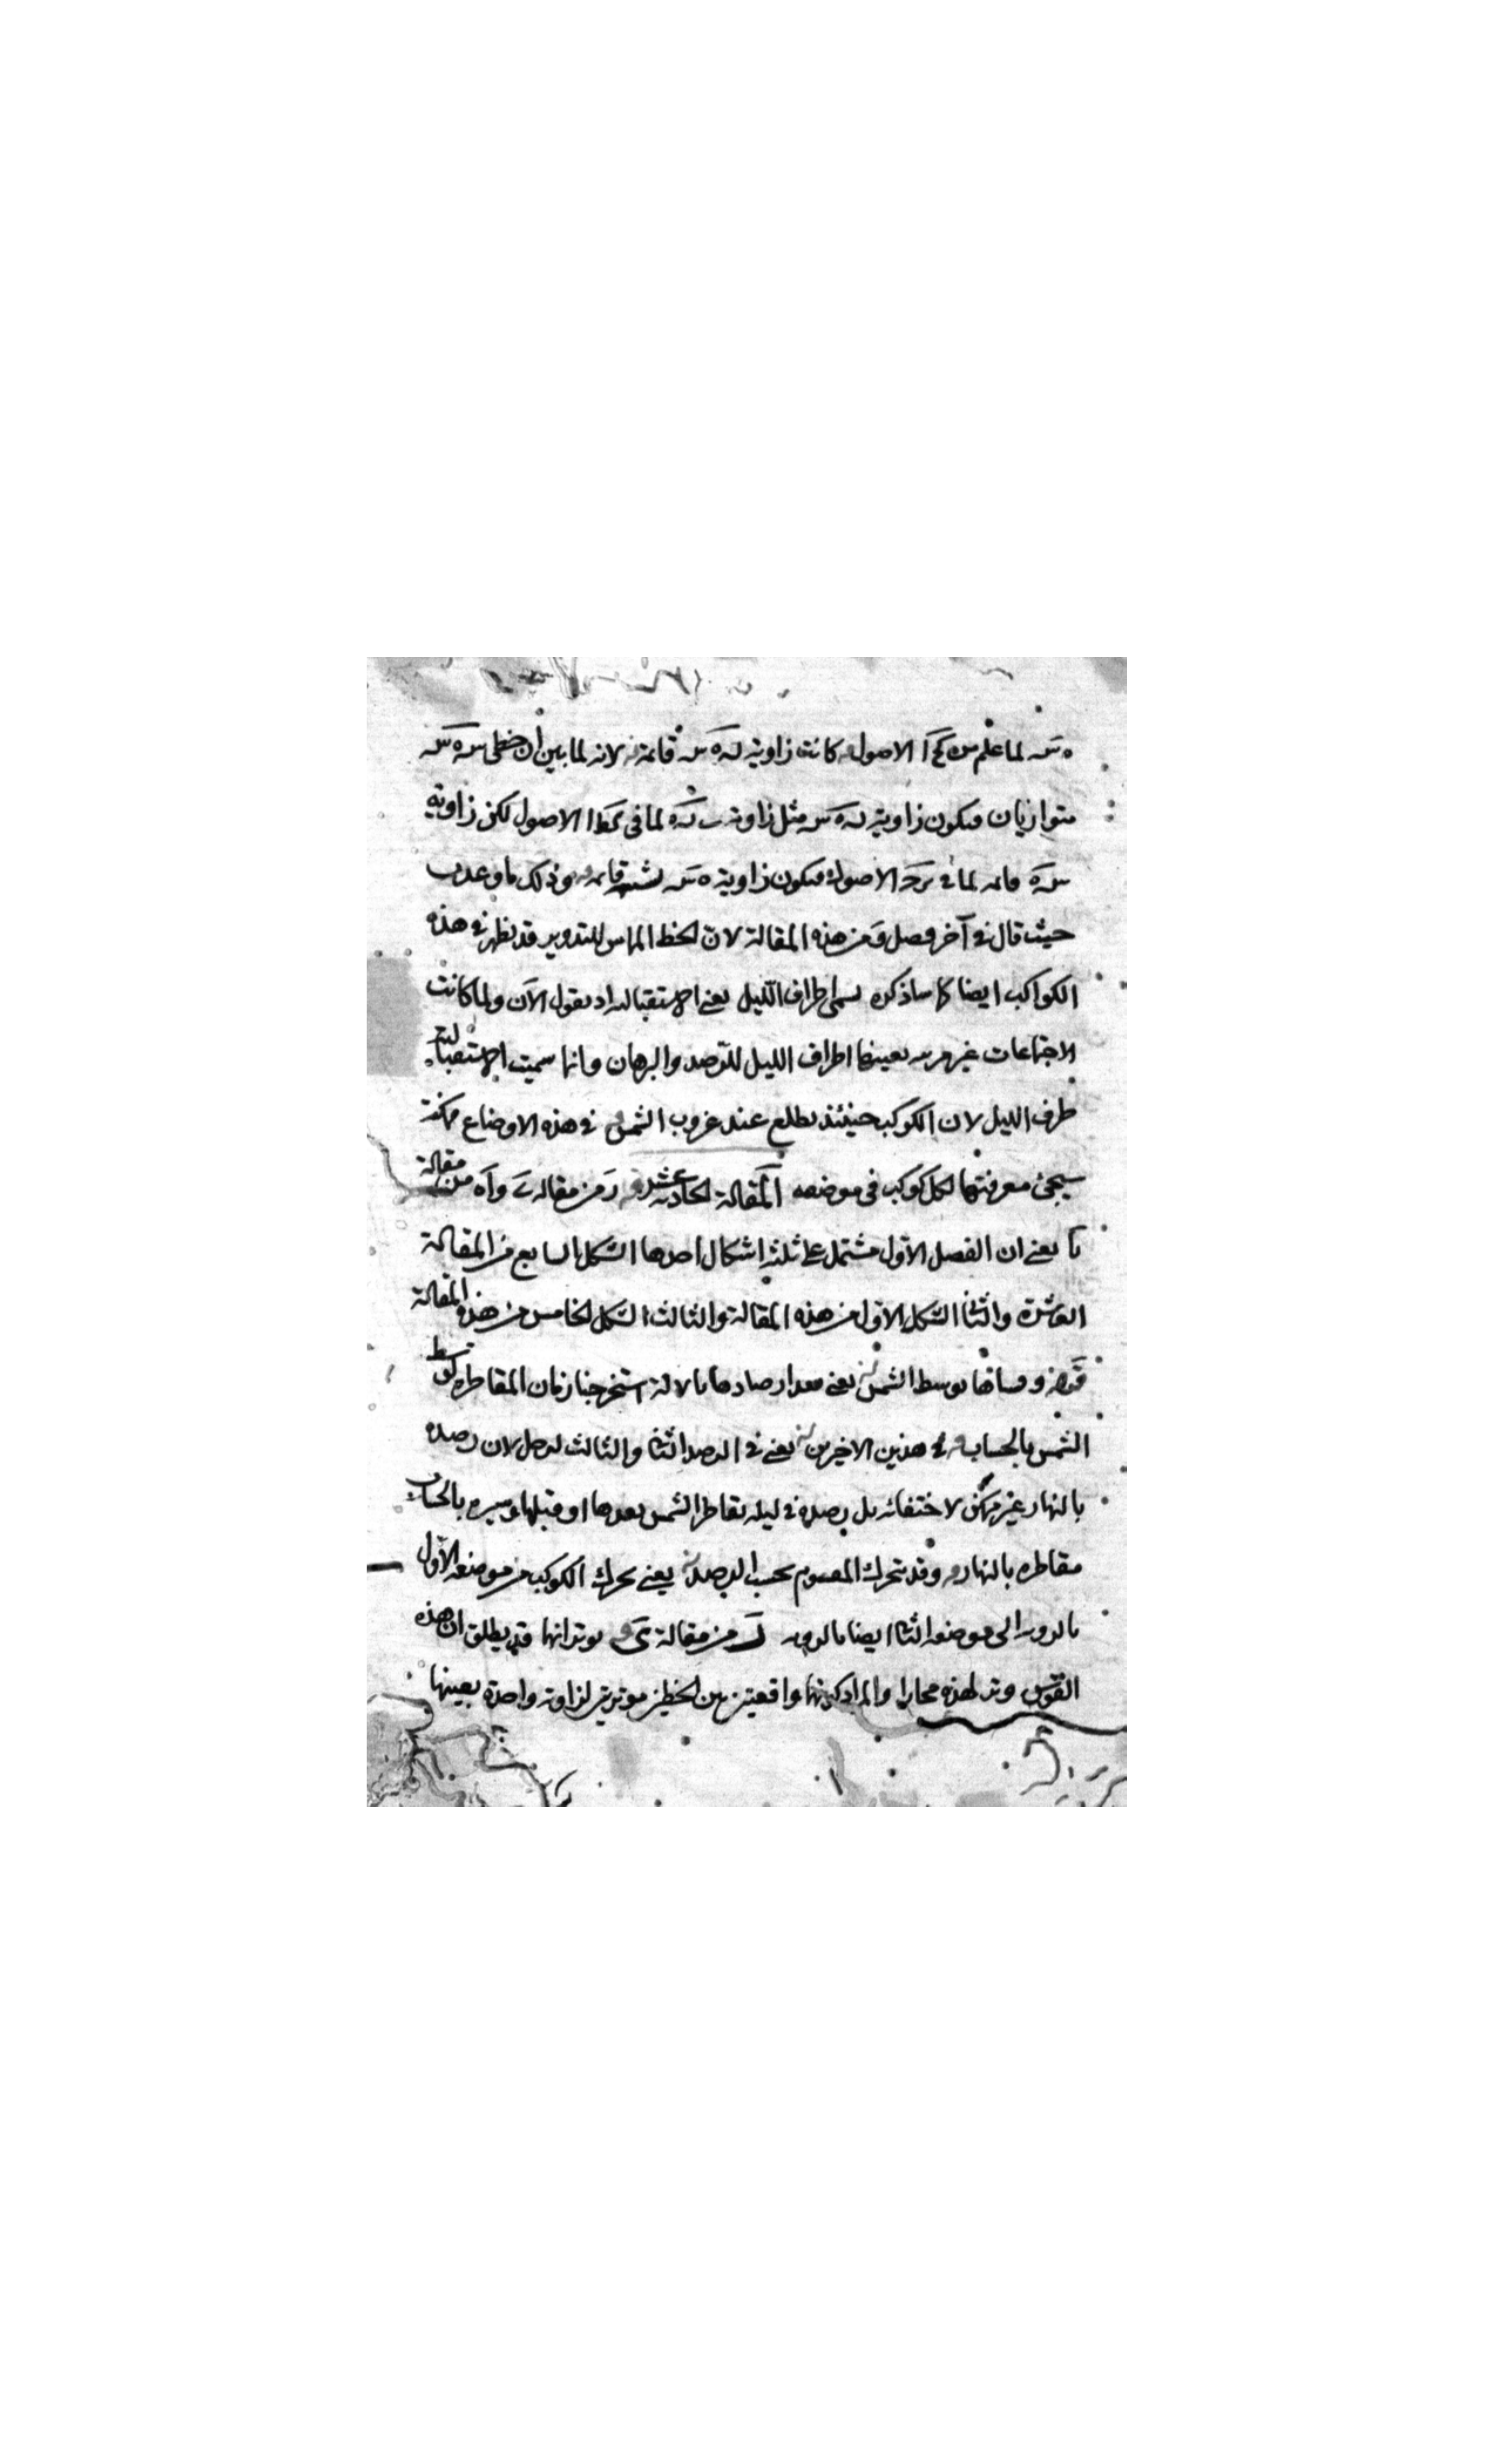 ه س لما علم من كح ا الاصول كانت زاوية ل ه س قائمة لانه لما بين ان خطى س ه س
متوازيان فيكون زاوية ل ه س مثل زاوية لما فى كط ا الاصول لكن زاوية
قائمه لما فى الاصول فيكون زاوية ه س قائمه وذلك ما وعدت
حيث قال فى آخر فصل و من هذه المقالة لان الخط المماس للتدوير قد يظهر فى هذه
الكواكب ايضا كما ساذكره يسمى اطراف الليل يعنى الاستقبالية اذ يقول الآن ولما كانت
الاجتماعات غير مرئيه بعينها اطراف الليل للرصد والبرهان وانما سميت الاستقبالية
طرف الليل لان الكوكب حينئذ يطلع عند غروب الشمس فى هذه الاوضاع ممكنة
سيجئ معرفتها لكل كوكب فى موضعه المقالة الحادية عشر ز من مقاله ى و ا ه من مقالة
يا يعنى ان الفصل الاول مشتمل على ثلثة اشكال احدها الشكل السابع من المقالة
العاشرة والثانى الشكل الاول من هذه المقالة والثالث الشكل الخامس من هذه المقالة
وقسناها بوسط الشمس يعنى بعد ارصادها بالالة استخرجنا زمان المقاطره بوسط
الشمس بالحساب فى هذين الاخيرين يعنى فى الرصد الثانى والثالث لزحل لان رصده
بالنهار غير ممكن لاختفائه بل رصده فى ليلة تقاطر الشمس بعدها او قبلها وسيره بالحساب
مقاطره بالنهار وقد تحرك المرسوم بحسب الرصد يعنى تحرك الكوكب من موضعه الاول
بالدور الى موضعه الثانى ايضا بالدور من مقالة ى يوترانها قد يطلق ان هذه
القوس وتر لهذه مجازا والمراد كونها واقعتين بين الخطين موترتين لزاوية واحدة بعينها